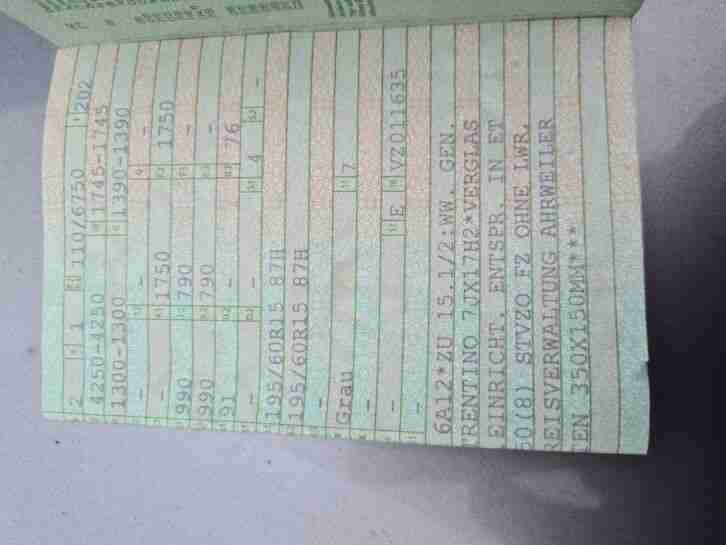 2 1 110/6750 202
4250-4250 1745-1745
1300-1300 1390-1390
- - -
- 1750 1750
990 790 -
990 790 -
91 - 76
- - 4 -
195/60R15 87H
195/60R15 87H
-
Grau 7
-
- E VZ011635
-
6A12*ZU 15.1/2:WW. GEN.
TRENTINO 7JX17H2*VERGLAS
EINRICHT. ENTSPR. IN ET
50(8) STVZO FZ OHNE LWR.
REISVERWALTUNG AHRWEILER
TEN 350X150MM***